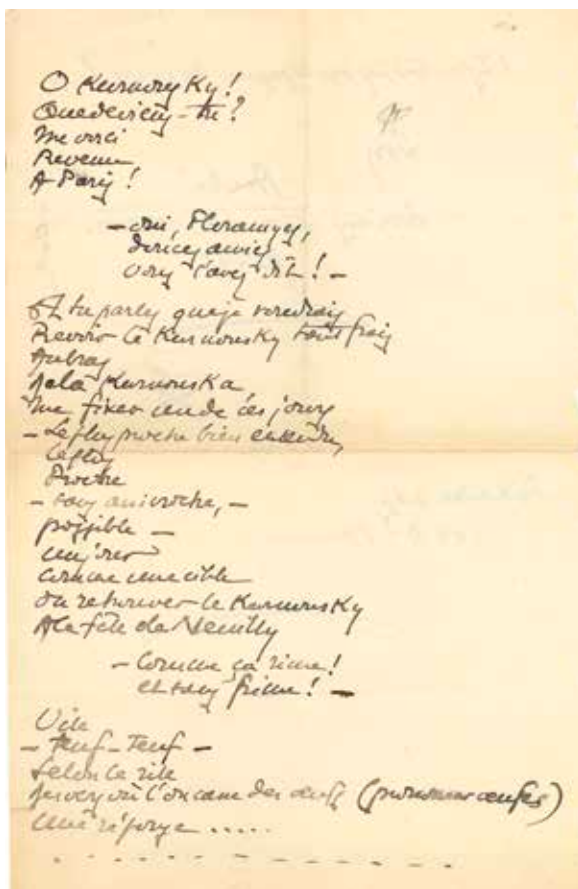 O Kurnonsky!
Que deviens-tu?
Me voici
Revenu
A Paris!
— oui,
douces amies
vous l'avez dit! —
Et tu parles que je voudrais
Revoir le Kurnonsky tout frais
Au bras
De la Kurnonska
Me fixer un de ces jours
— Le plus proche bien entendu,
Le plus
Proche
— sans anicroche, —
possible —
un jour
comme une cible
Où retrouver le Kurnonsky
A la fête de Neuilly
— Comme ça rime!
et sans frime! —
Vite
— teuf-teuf —
Selon le rite
où l'on casse des œufs (prononcer œufes)
Une réponse .....